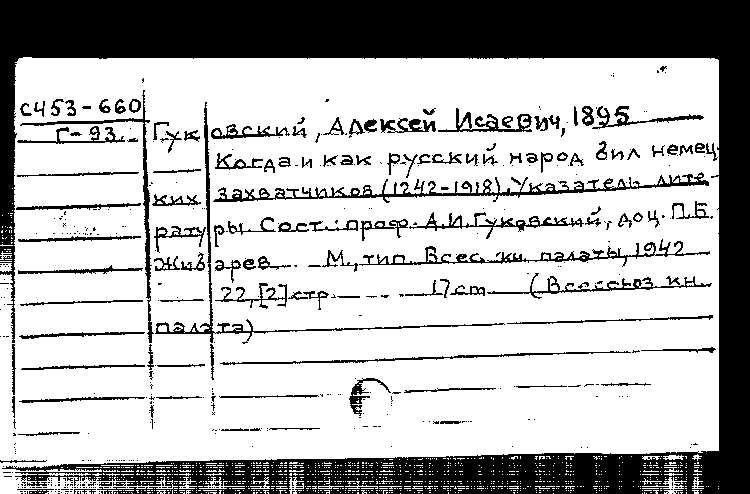 С453-660
Г-93. Гуковский, Алексей Исаевич, 1895
Когда и как русский народ бил немец-
ких захватчиков (1242-1918). Указатель лите-
ратуры. Сост.: проф. А.И. Гуковский, доц. П.Е.
Живарев. М., тип. Всес. кн. палаты, 1942
22, [2] стр 17 cm (Всесоюз кн.
палата)